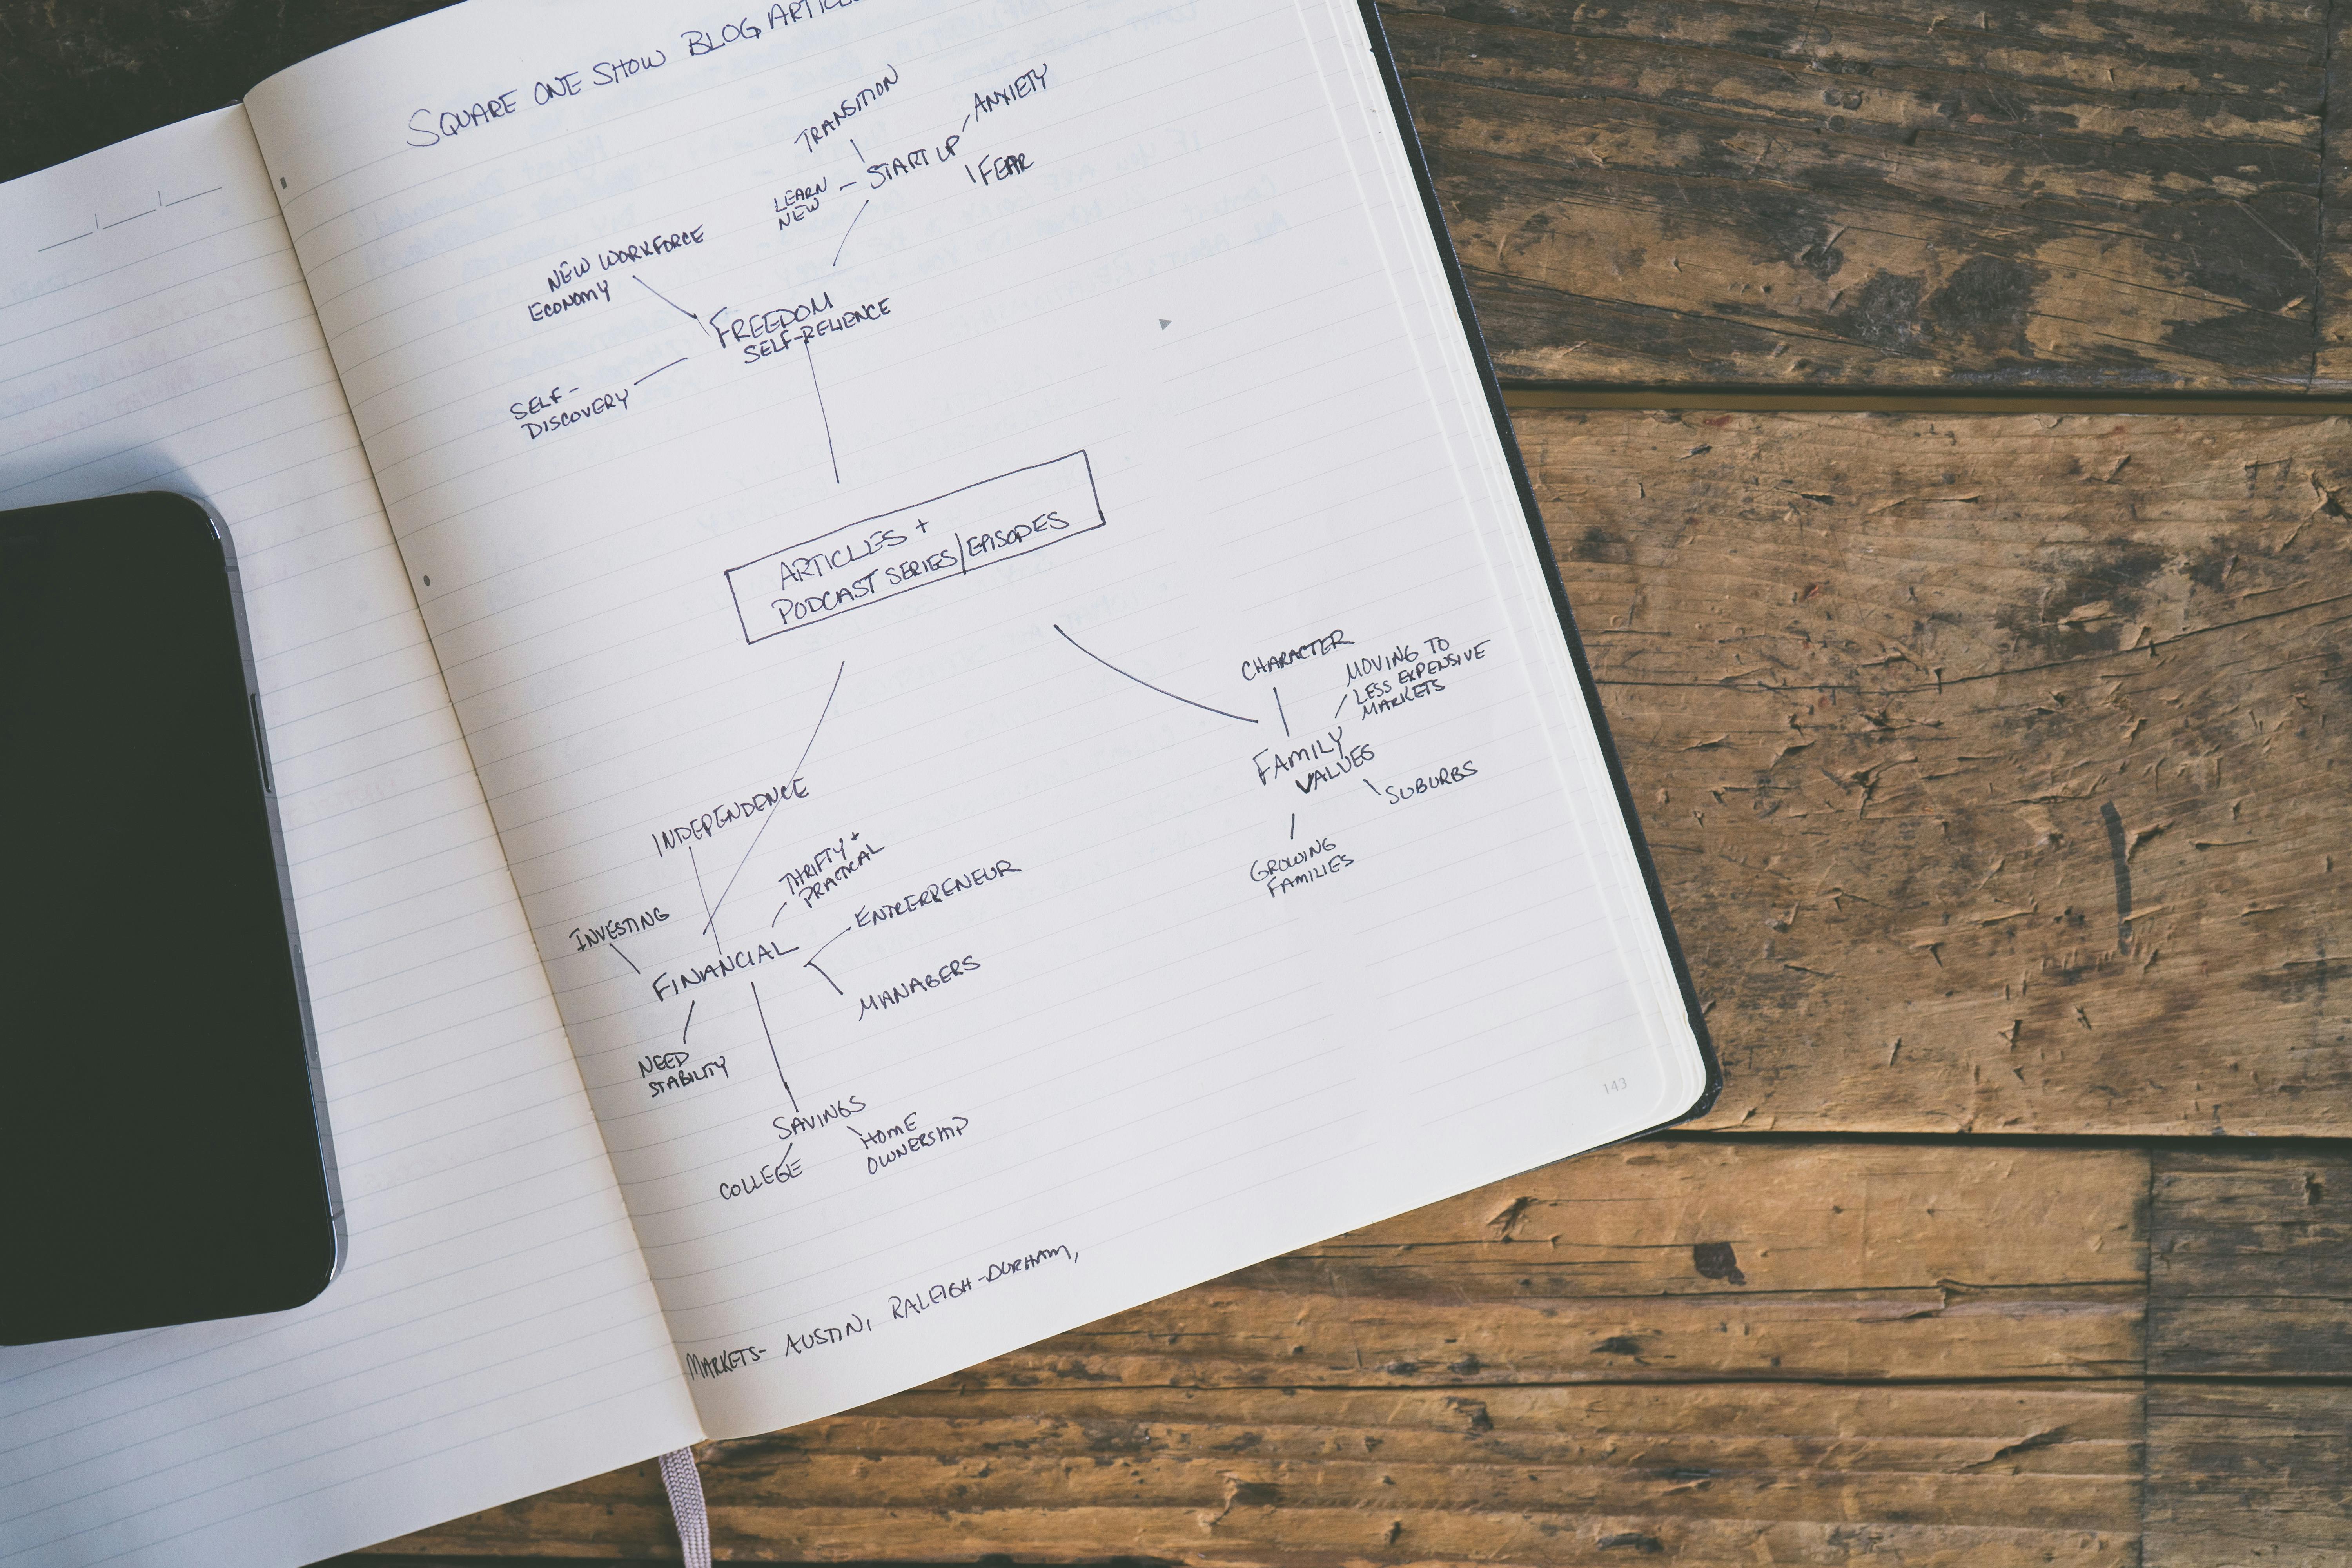 SQUARE ONE SHOW BLOG
TRANSITION
ANXIETY
START UP
FEAR
LEARN
NEW
NEW WORKFORCE
ECONOMY
FREEDOM
SELF-RELIENCE
SELF-
DISCOVERY
ARTICLES +
PODCAST SERIES/EPISODES
CHARACTER
MOVING TO
LESS EXPENSIVE
MARKETS
FAMILY
VALUES
SUBURBS
GROWING
FAMILIES
INDEPENDENCE
THRIFTY +
PRACTICAL
ENTRERPRENEUR
INVESTING
FINANCIAL
MANAGERS
NEED
STABILITY
SAVINGS
HOME
OWNERSHIP
COLLEGE
143
MARKETS- AUSTIN, RALEIGH-DURHAM,